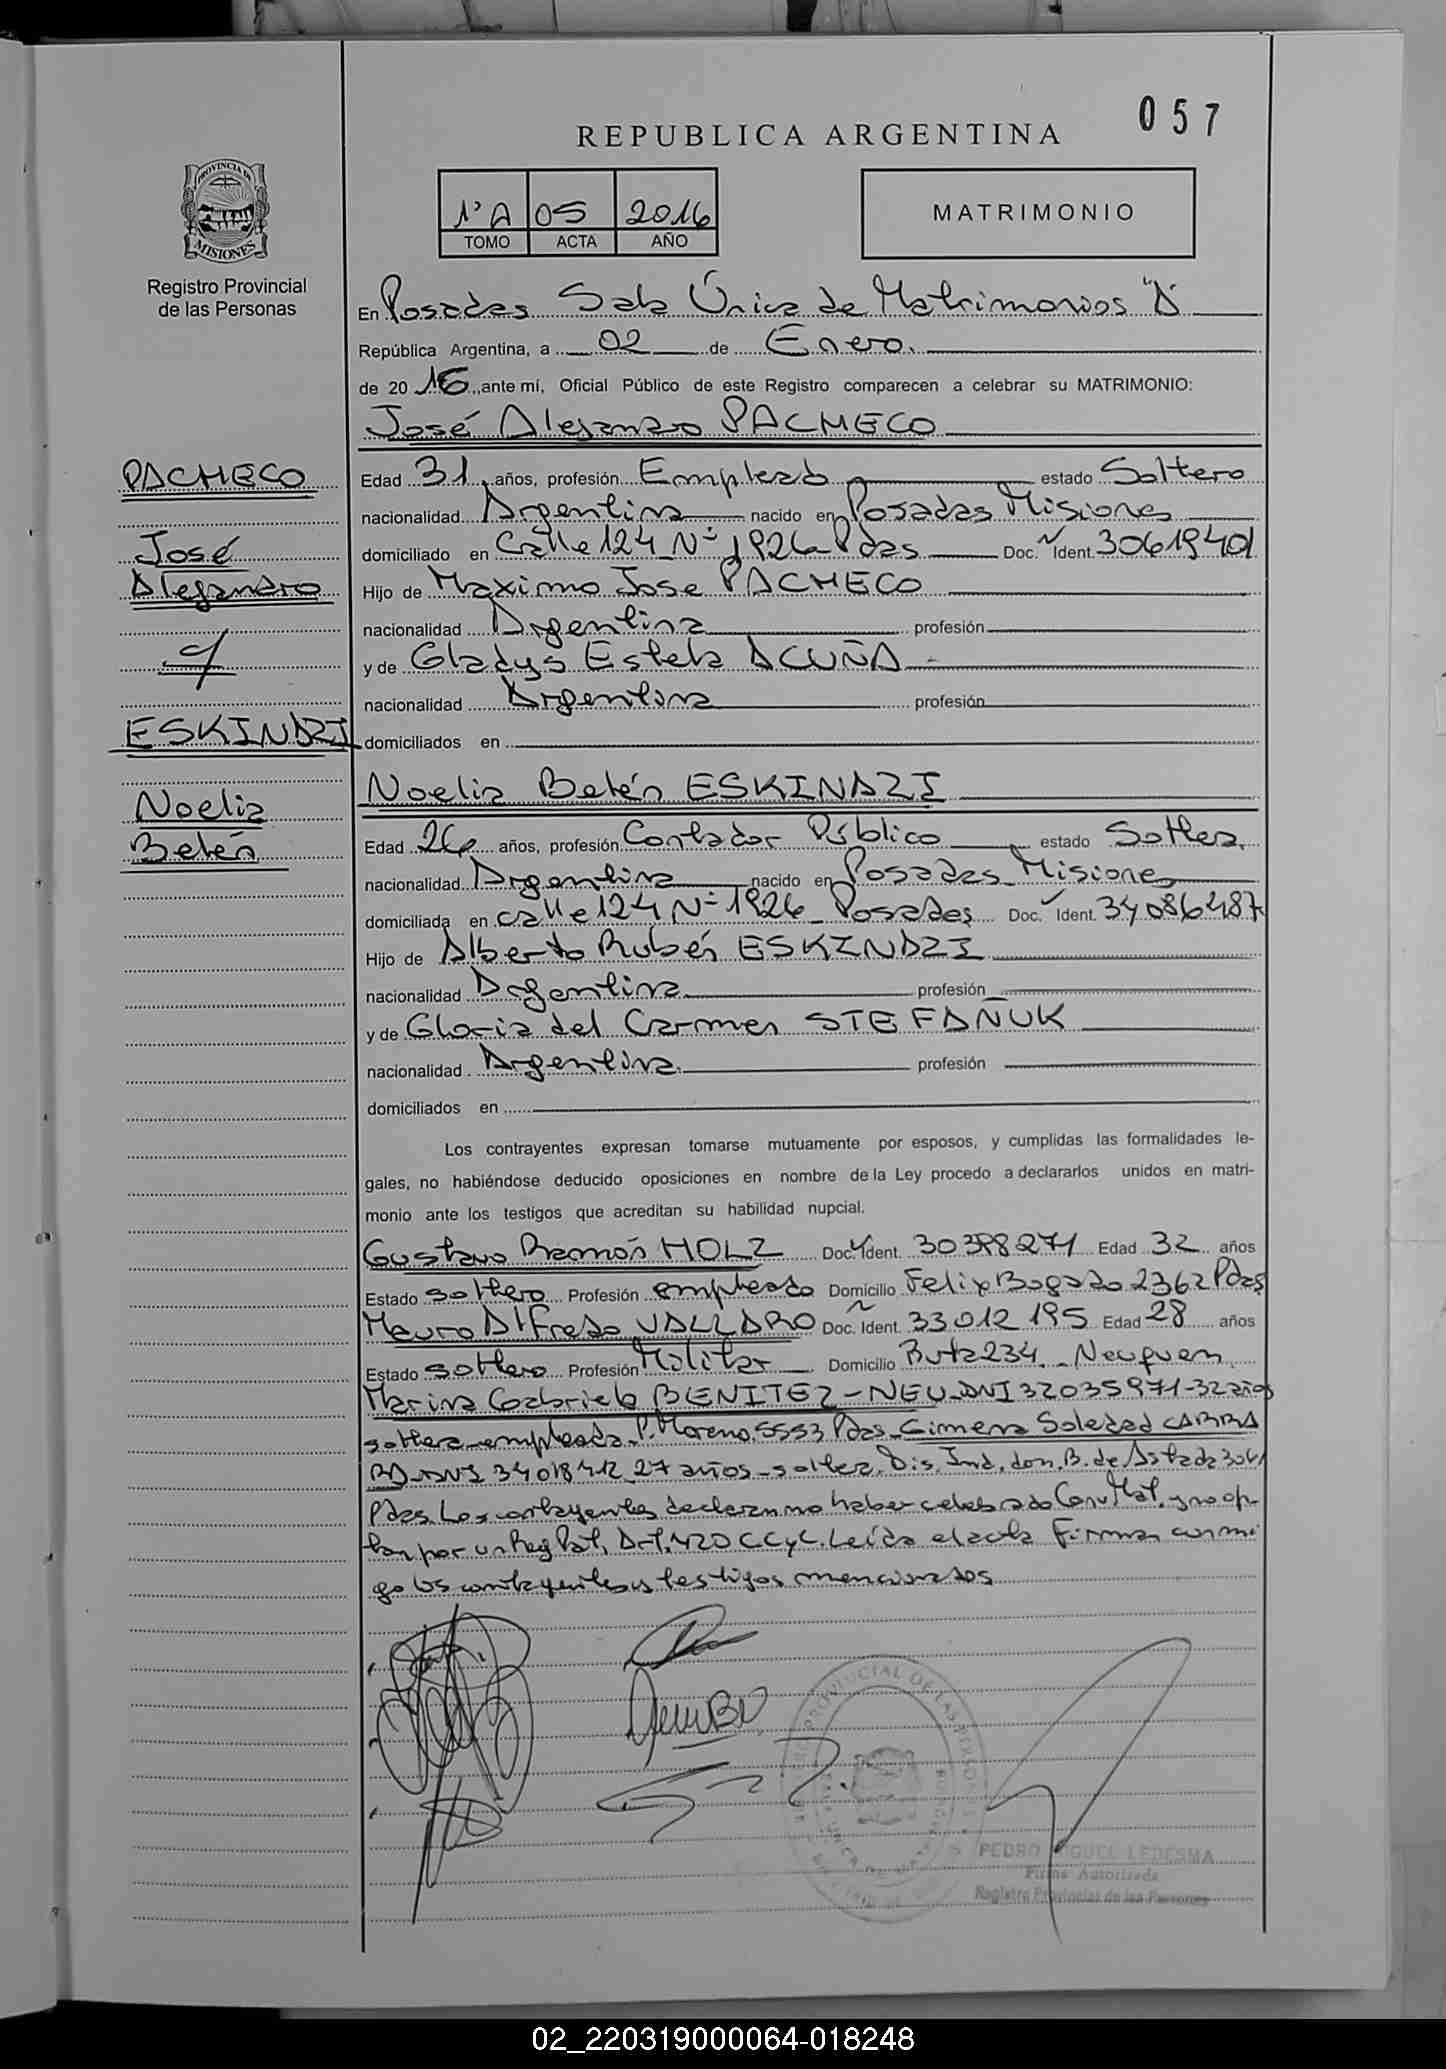 057
REPUBLICA ARGENTINA
PROVINCIA DE
MISIONES
Registro Provincial
de las Personas
1º A 05 2016
TOMO ACTA AÑO
MATRIMONIO
En Posadas Sala Única de Matrimonios "A"
República Argentina, a 02 de Enero.
de 2016, ante mí, Oficial Público de este Registro comparecen a celebrar su MATRIMONIO:
José Alejandro PACHECO
PACHECO
José
Alejandro
y
ESKINAZI
Noelia
Belén
Edad 31 años, profesión Empleado estado Soltero
nacionalidad Argentina nacido en Posadas Misiones
domiciliado en Calle 124 Nº 1926 Pdas Doc. Ident. 30619401
Hijo de Maximo Jose PACHECO
nacionalidad Argentina profesión
y de Gladys Estela ACUÑA
nacionalidad Argentina profesión
domiciliados en
Noelia Belén ESKINAZI
Edad 26 años, profesión Contador Público estado Soltera.
nacionalidad Argentina nacido en Posadas Misiones
domiciliada en calle 124 Nº 1926 Posadas Doc. Ident. 34086487
Hijo de Alberto Rubén ESKINAZI
nacionalidad Argentina profesión
y de Gloria del Carmen STEFAÑUK
nacionalidad Argentina profesión
domiciliados en
Los contrayentes expresan tomarse mutuamente por esposos, y cumplidas las formalidades le-
gales, no habiéndose deducido oposiciones en nombre de la Ley procedo a declararlos unidos en matri-
monio ante los testigos que acreditan su habilidad nupcial.
Gustavo Ramón HOLZ Doc. Ident. 30398271 Edad 32 años
Estado soltero Profesión empleado Domicilio Felix Bogado 2362 Pdas
Mauro Alfredo VALLARO Doc. Ident. 33012195 Edad 28 años
Estado soltero Profesión Militar Domicilio Buta 234 Neuquen
Marina Gabriela BENITEZ-NEU DNI 32035971-32 años
soltera empleada P. Moreno 5553 Pdas Gimena Soledad CABRA
DNI 34018412 27 años soltera Dis. Ind. dom. B. de Astrada
Pdas. Los contrayentes declaran no haber celebrado Conv. Mat. y no op-
tan por un Reg Pat. Art. 420 CCyC. Leída el acta Firman conmi
go los contrayentes y testigos mencionados
PEDRO MIGUEL LEDESMA
Firma Autorizada
Registro Provincial de las Personas
02_220319000064-018248